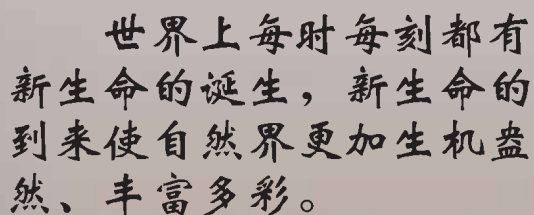 世界上每时每刻都有
新生命的诞生，新生命的
到来使自然界更加生机盎
然、丰富多彩。